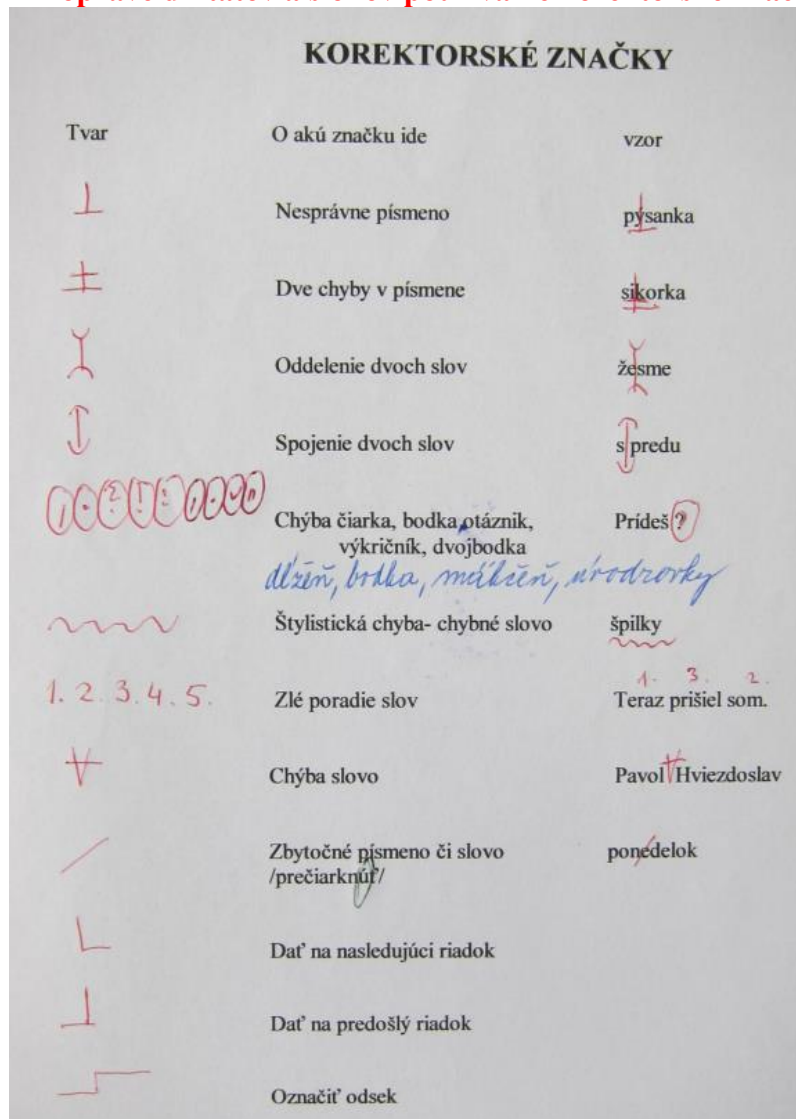 KOREKTORSKÉ ZNAČKY
Tvar O akú značku ide vzor
Nesprávne písmeno pýsanka
Dve chyby v písmene sikorka
Oddelenie dvoch slov žesme
Spojenie dvoch slov s predu
Chýba čiarka, bodka, otáznik, Prídeš ?
výkričník, dvojbodka
dĺžeň, bodka, mäkčeň, úvodzovky
Štylistická chyba- chybné slovo špilky
1. 3. 2.
1. 2. 3. 4. 5. Zlé poradie slov Teraz prišiel som.
Chýba slovo Pavol Hviezdoslav
Zbytočné písmeno či slovo ponedelok
/prečiarknúť/
Dať na nasledujúci riadok
Dať na predošlý riadok
Označiť odsek